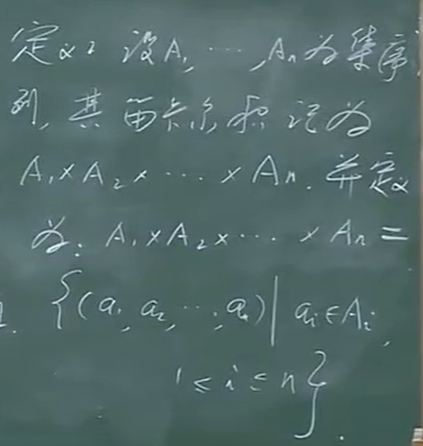 定义2 设A₁, ⋯, Aₙ为集序
列, 其笛卡尔积记为
A₁×A₂×⋯×Aₙ. 并定义
为: A₁×A₂×⋯×Aₙ=
{(a₁, a₂, ⋯, aₙ)| aᵢ∈Aᵢ,
1≤i≤n}.